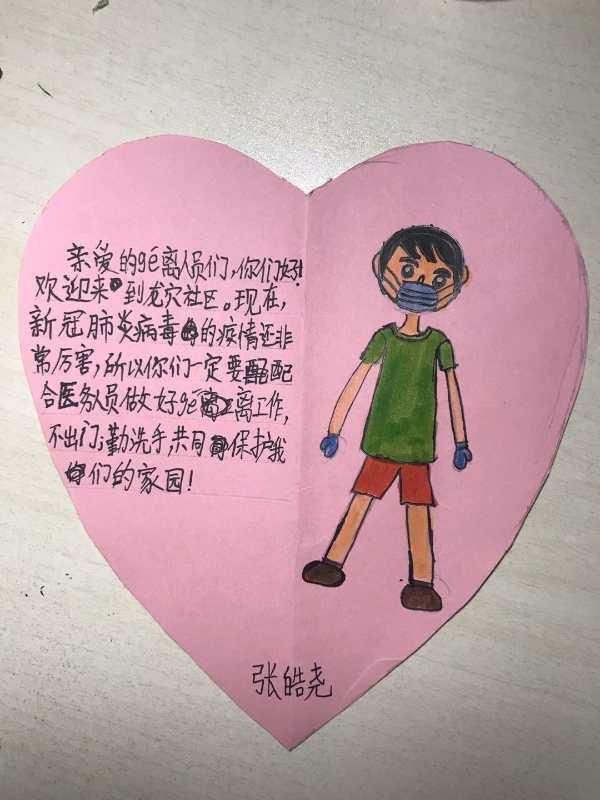 亲爱的gé离人员们，你们好！
欢迎来到龙穴社区。现在，
新冠肺炎病毒的疫情还非
常厉害，所以你们一定要配
合医务人员做好gé离工作，
不出门，勤洗手，共同保护我
们的家园！
张皓尧